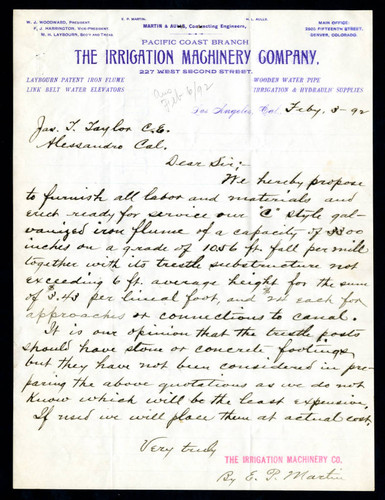 W. J. WOODWARD, PRESIDENT.
F. J. HARRINGTON, VICE-PREST.
R. H. LAYBOURN, SEC'Y AND TREAS.
E. P. MARTIN. H. L. AULLS.
MARTIN & AULLS, Contracting Engineers,
MAIN OFFICE:
FIFTEENTH STREET,
DENVER, COLORADO.
PACIFIC COAST BRANCH
THE IRRIGATION MACHINERY COMPANY,
227 WEST SECOND STREET.
LAYBOURN PATENT IRON FLUME
LINK BELT WATER ELEVATORS
WOODEN WATER PIPE
IRRIGATION & HYDRAULIC SUPPLIES
Feb 6/92
Los Angeles, Cal. Feby. 3-92
Jas. T. Taylor C.E.
Alessandro Cal.
Dear Sir:-
We hereby propose
to furnish all labor and materials and
erect ready for service our "C" style gal-
vanized iron flume of a capacity of 3300
inches on a grade of 10.56 ft. fall per mile
together with its trestle substructure not
exceeding 6 ft. average height for the sum
of $3.43 per lineal foot, and each for
approaches or connections to canal.
It is our opinion that the trestle posts
should have stone or concrete footings,
but they have not been considered in pre-
paring the above quotations as we do not
know which will be the least expensive.
If used we will place them at actual cost.
Very truly
THE IRRIGATION MACHINERY CO.
By E. P. Martin